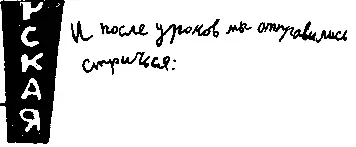 РСКАЯ
И после уроков мы отправились
стричься: